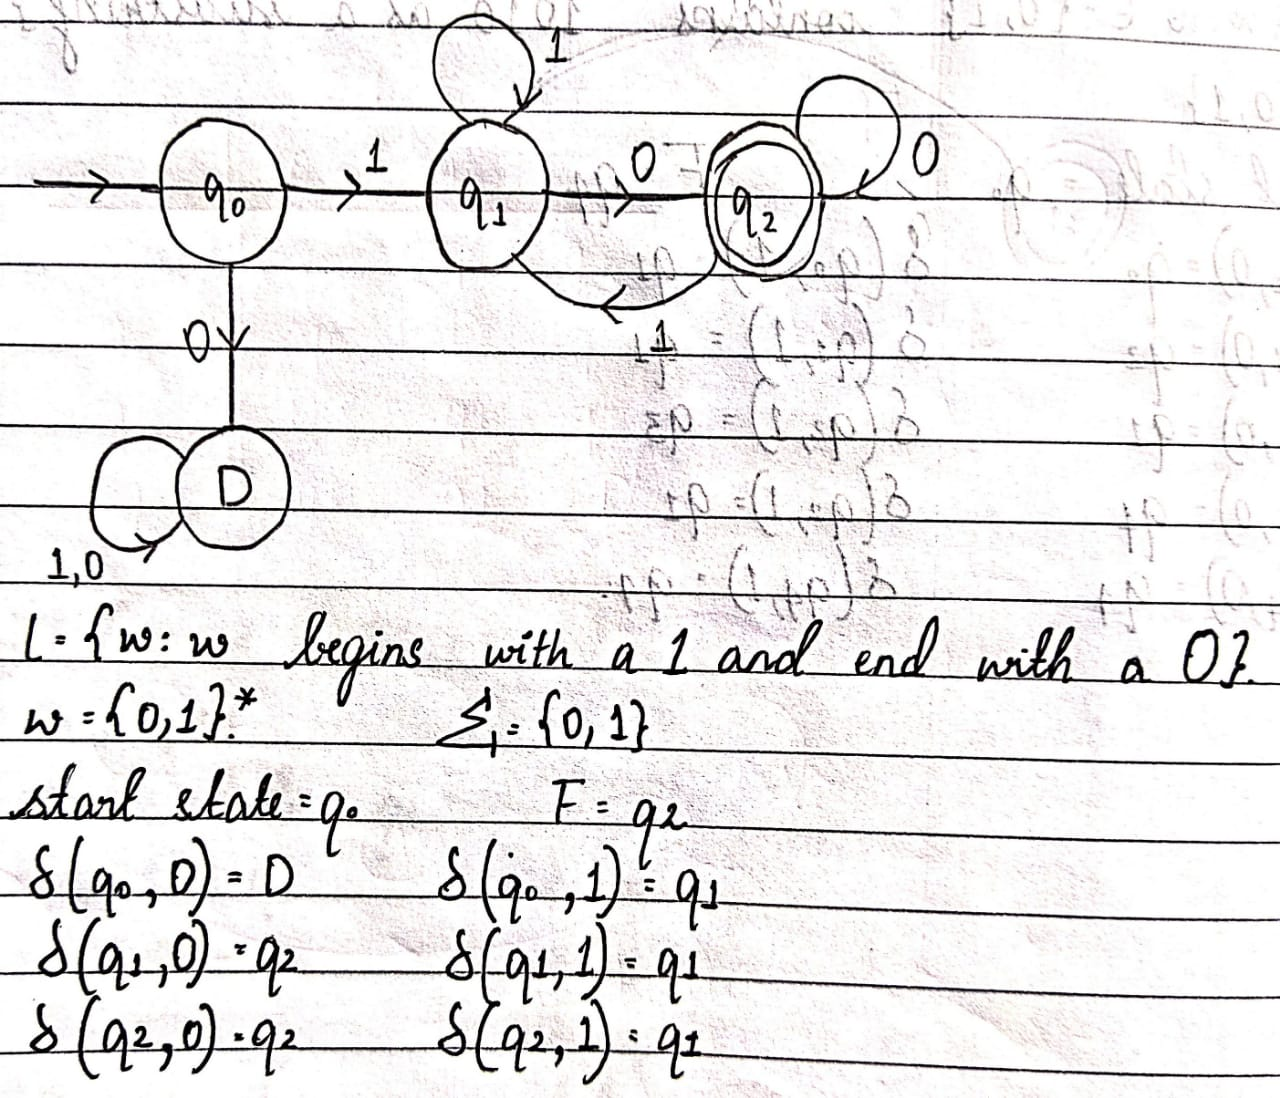 1
1
0
0
q0
q1
q2
1
0
D
1,0
L = {w: w begins with a 1 and end with a 0}.
w = {0,1}.* Σ = {0,1}
start state = q0 F = q2
δ(q0,0) = D δ(q0,1) = q1
δ(q1,0) = q2 δ(q1,1) = q1
δ(q2,0) = q2 δ(q2,1) = q1